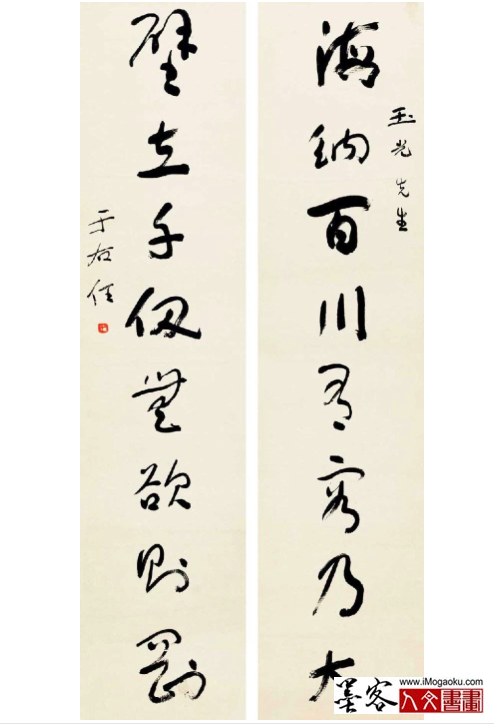 玉光先生
海纳百川有容乃大
壁立千仞無欲則剛
于右任
www.iMogaoku.com
墨客人文書畫